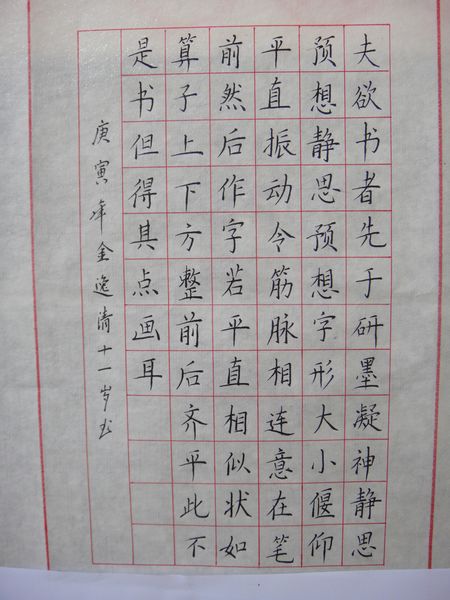 夫欲书者先于研墨凝神静思
预想静思预想字形大小偃仰
平直振动令筋脉相连意在笔
前然后作字若平直相似状如
算子上下方整前后齐平此不
是书但得其点画耳
庚寅年金逸清十一岁书